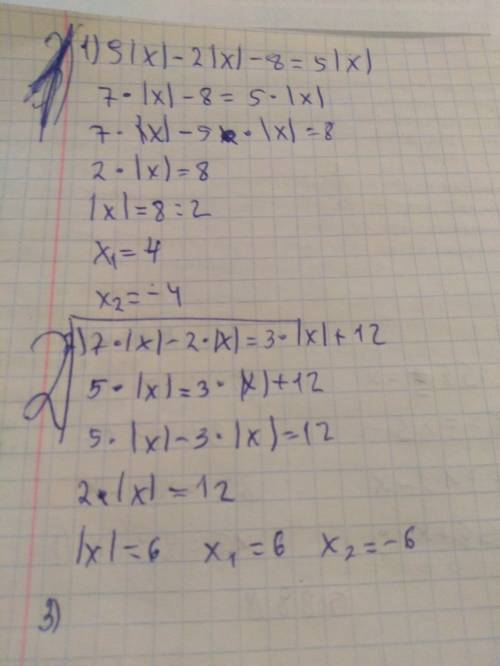 1) 9|x|-2|x|-8=5|x|
7·|x|-8=5·|x|
7·|x|-5·|x|=8
2·|x|=8
|x|=8:2
x₁=4
x₂=-4
2) 7·|x|-2·|x|=3·|x|+12
5·|x|=3·|x|+12
5·|x|-3·|x|=12
2·|x|=12
|x|=6 x₁=6 x₂=-6
3)